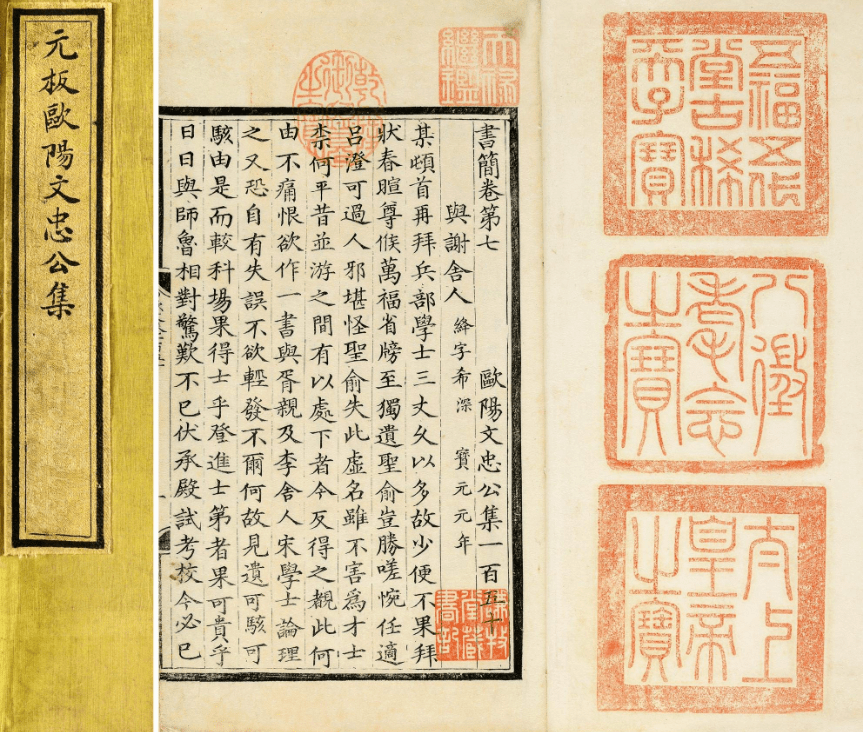 元板歐陽文忠公集
天祿
繼鑑
乾隆御覽之寶
書簡卷第七 歐陽文忠公集一百五十
與謝舍人 絳字希深 寶元元年
某頓首再拜兵部學士三丈久以多故少便不果拜
狀春暄尊候萬福省牓至獨遺聖俞豈勝嗟惋任適
呂澄可過人邪堪怪聖俞失此虛名雖不害爲才士
柰何平昔並游之間有以處下者今反得之覩此何
由不痛恨欲作一書與胥親及李舍人宋學士論理
之又恐自有失誤不欲輕發不爾何故見遺可駭可
駭由是而較科場果得士乎登進士第者果可貴乎
日日與師魯相對驚歎不已伏承殿試考校今必已
謙牧
堂藏
書記
五福五代
堂古稀
天子寶
八徵
耄念
之寶
太上
皇帝
之寶